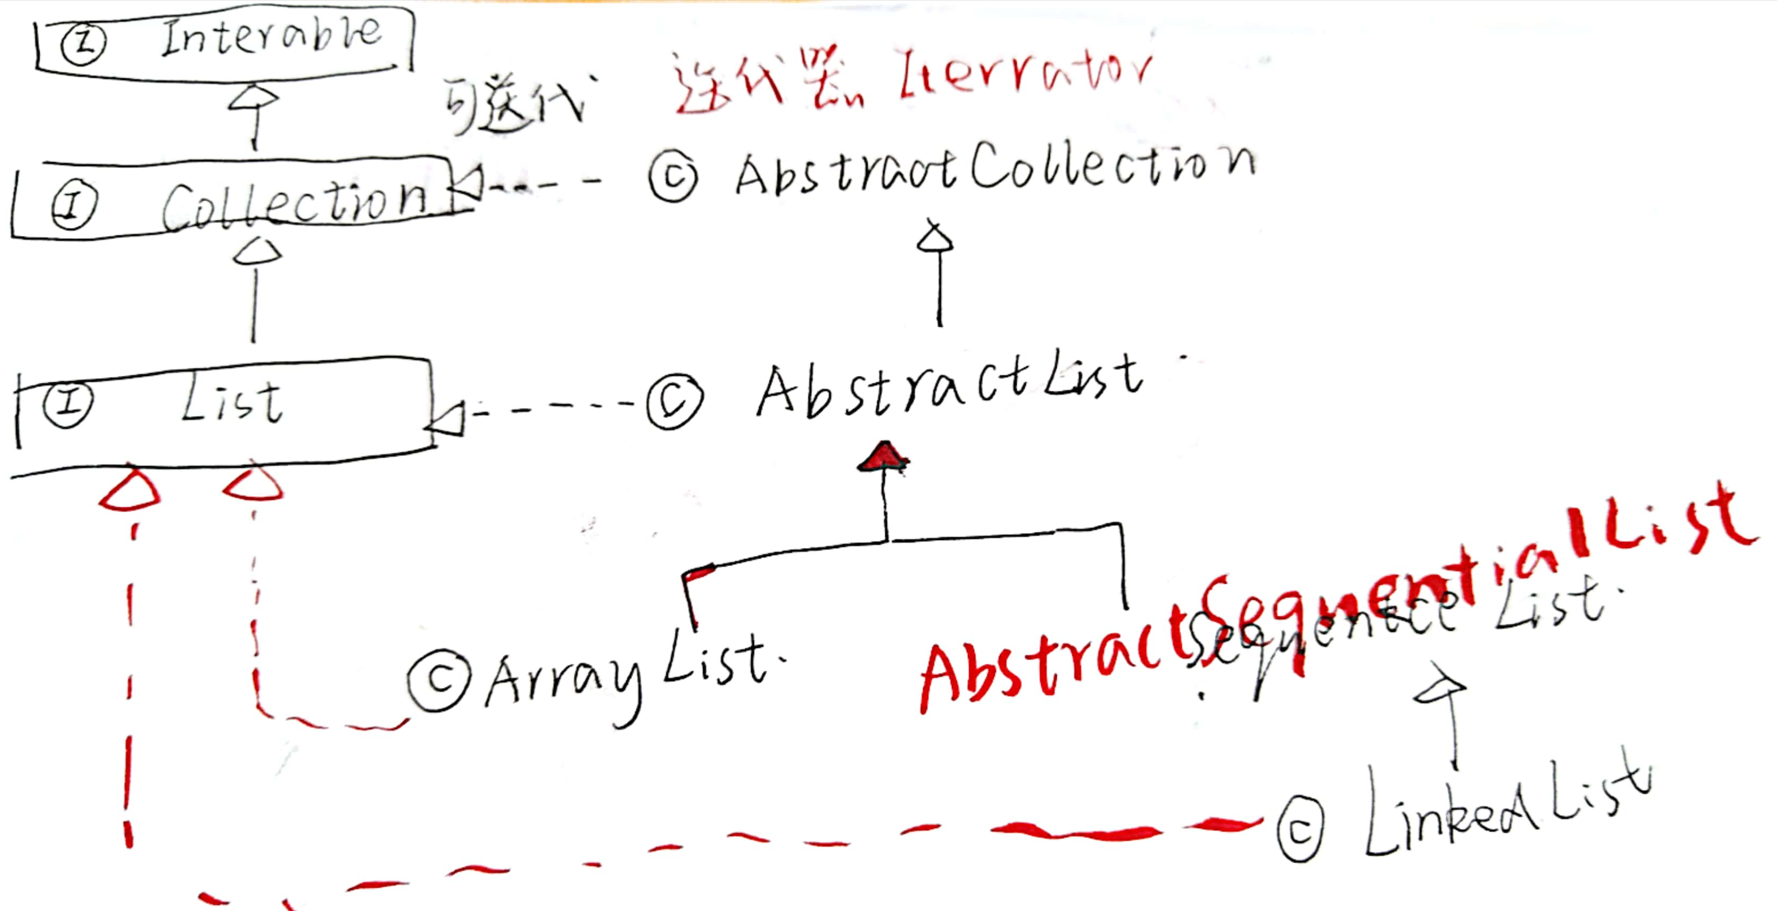 I Interable
可迭代 迭代器 Iterrator
I Collection C AbstractCollection
I List C AbstractList
AbstractSequentialList
Sequence List.
C Array List.
C LinkedList